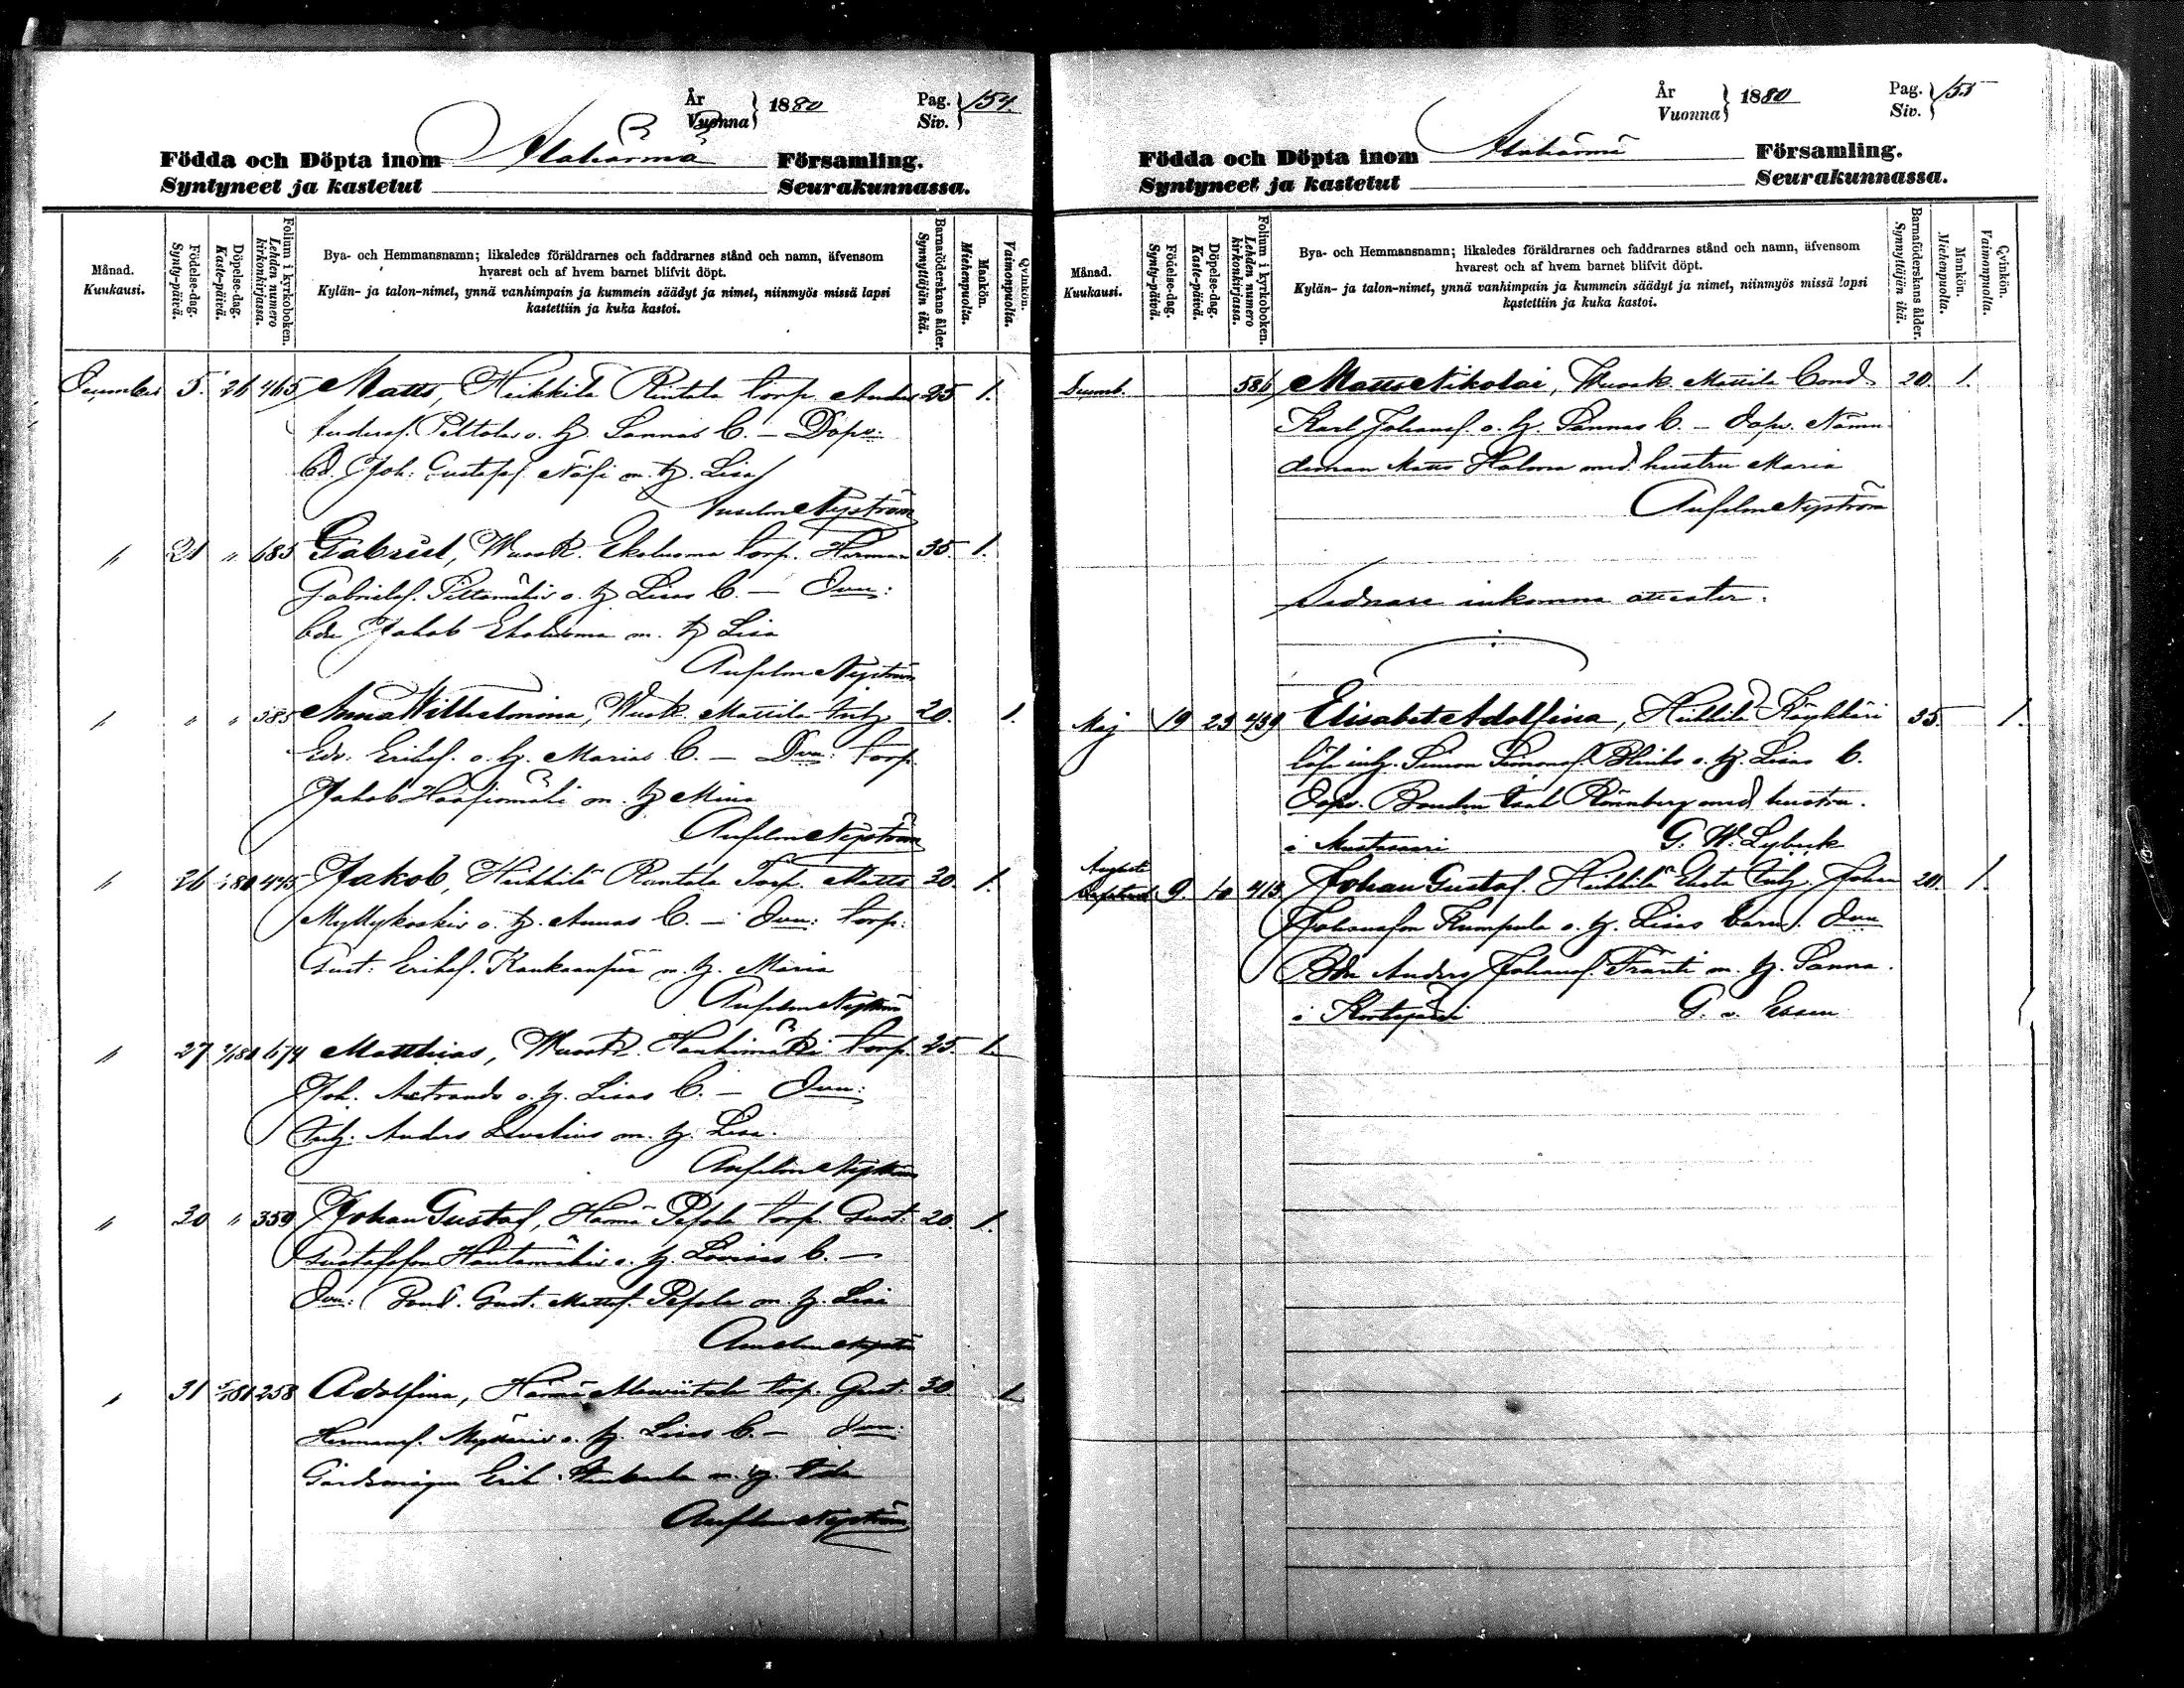 År
Vuonna } 1880
Pag.
Siv. } 154.
Födda och Döpta inom Alahärmä Församling.
Syntyneet ja kastetut Seurakunnassa.
Månad.
Kuukausi.
Födelse-dag.
Synty-päivä.
Döpelse-dag.
Kaste-päivä.
Folium i kyrkoboken.
Lehden numero
kirkonkirjassa.
Bya- och Hemmansnamn; likaledes föräldrarnes och faddrarnes stånd och namn, äfvensom
hvarest och af hvem barnet blifvit döpt.
Kylän- ja talon-nimet, ynnä vanhimpain ja kummein säädyt ja nimet, niinmyös missä lapsi
kastettiin ja kuka kastoi.
Barnaföderskans ålder.
Synnyttäjän ikä.
Mankön.
Miehenpuolta.
Qvinkön.
Vaimonpuolta.
December 5. 26 465 Matts, Heikkilä Rintala torp. Anders 25 1.
Andersf. Peltolas o. h. Sannas b. – Dopv.
bd. Joh. Gustafsf. m. h. Lisa
Anselm Nyström
" 21 " 685 Gabriel, Wuosk. Ekoluoma torp. Herman 35. 1.
Gabrielsf. o. h. Lisas b. – Dvn:
bdn Jakob Ekoluoma m. h. Lisa
Anselm Nyström
" " " 585 Anna Wilhelmina, Wuosk. Mattila inh. 20. 1.
Edv. Eriksf. o. h. Marias b. – Dvn: torp.
Jakob m. h. Mina
Anselm Nyström
" 26 445 Jakob, Heikkilä Rintala Torp. Matts 30. 1.
Myllykoskis o. h. Annas b. – Dvn: torp.
Gust. Eriksf. Kankaanpää m. h. Maria
Anselm Nyström
" 27 674 Matthias, Wuosk. Hauhimäki torp. 25. 1.
Joh. o. h. Lisas b. – Dvn:
Inh. Anders m. h. Lisa.
Anselm Nyström
" 30 " 359 Johan Gustaf, Härmä Pesola torp. Gust. 20. 1.
Gustafsson Hautamäkis o. h. Lovisas b. –
Dvn: Bond. Gust. Mattsf. Pesola m. h. Lisa
Anselm Nyström
" 31 258 Adolfina, Härmä torp. Gust. 30. 1
Hermansf. o. h. Lisas b. – Dvn:
Erik m. h.
Anselm Nyström
År
Vuonna } 1880
Pag.
Siv. } 155
Födda och Döpta inom Alahärmä Församling.
Syntyneet ja kastetut Seurakunnassa.
Månad.
Kuukausi.
Födelse-dag.
Synty-päivä.
Döpelse-dag.
Kaste-päivä.
Folium i kyrkoboken.
Lehden numero
kirkonkirjassa.
Bya- och Hemmansnamn; likaledes föräldrarnes och faddrarnes stånd och namn, äfvensom
hvarest och af hvem barnet blifvit döpt.
Kylän- ja talon-nimet, ynnä vanhimpain ja kummein säädyt ja nimet, niinmyös missä lapsi
kastettiin ja kuka kastoi.
Barnaföderskans ålder.
Synnyttäjän ikä.
Mankön.
Miehenpuolta.
Qvinkön.
Vaimonpuolta.
Decemb. 586 Matts Nikolai, Wuosk. Mattila bond. 20. 1.
Karl Johansf. o. h. Sannas b. – dopv. Nämn
deman Matts Holma med hustru Maria
Anselm Nyström
Sednare inkomna attester.
Maj 19 23 439 Elisabet Adolfina, Heikkilä Köykkäri 35. 1.
inh. Simon Simonsf. o. h. Lisas b.
Dopv. Bonden Rönnberg med hustru.
i Mustasaari G. W. Lybeck
Augusti 9. 10 413 Johan Gustaf, Heikkilä Ekola inh. Johan 20. 1.
Johansson Kumpula o. h. Lisas barn. Dvn
Bdn Anders Johansf. Fränti m. h. Sanna.
i Kortesjärvi G. v. Essen